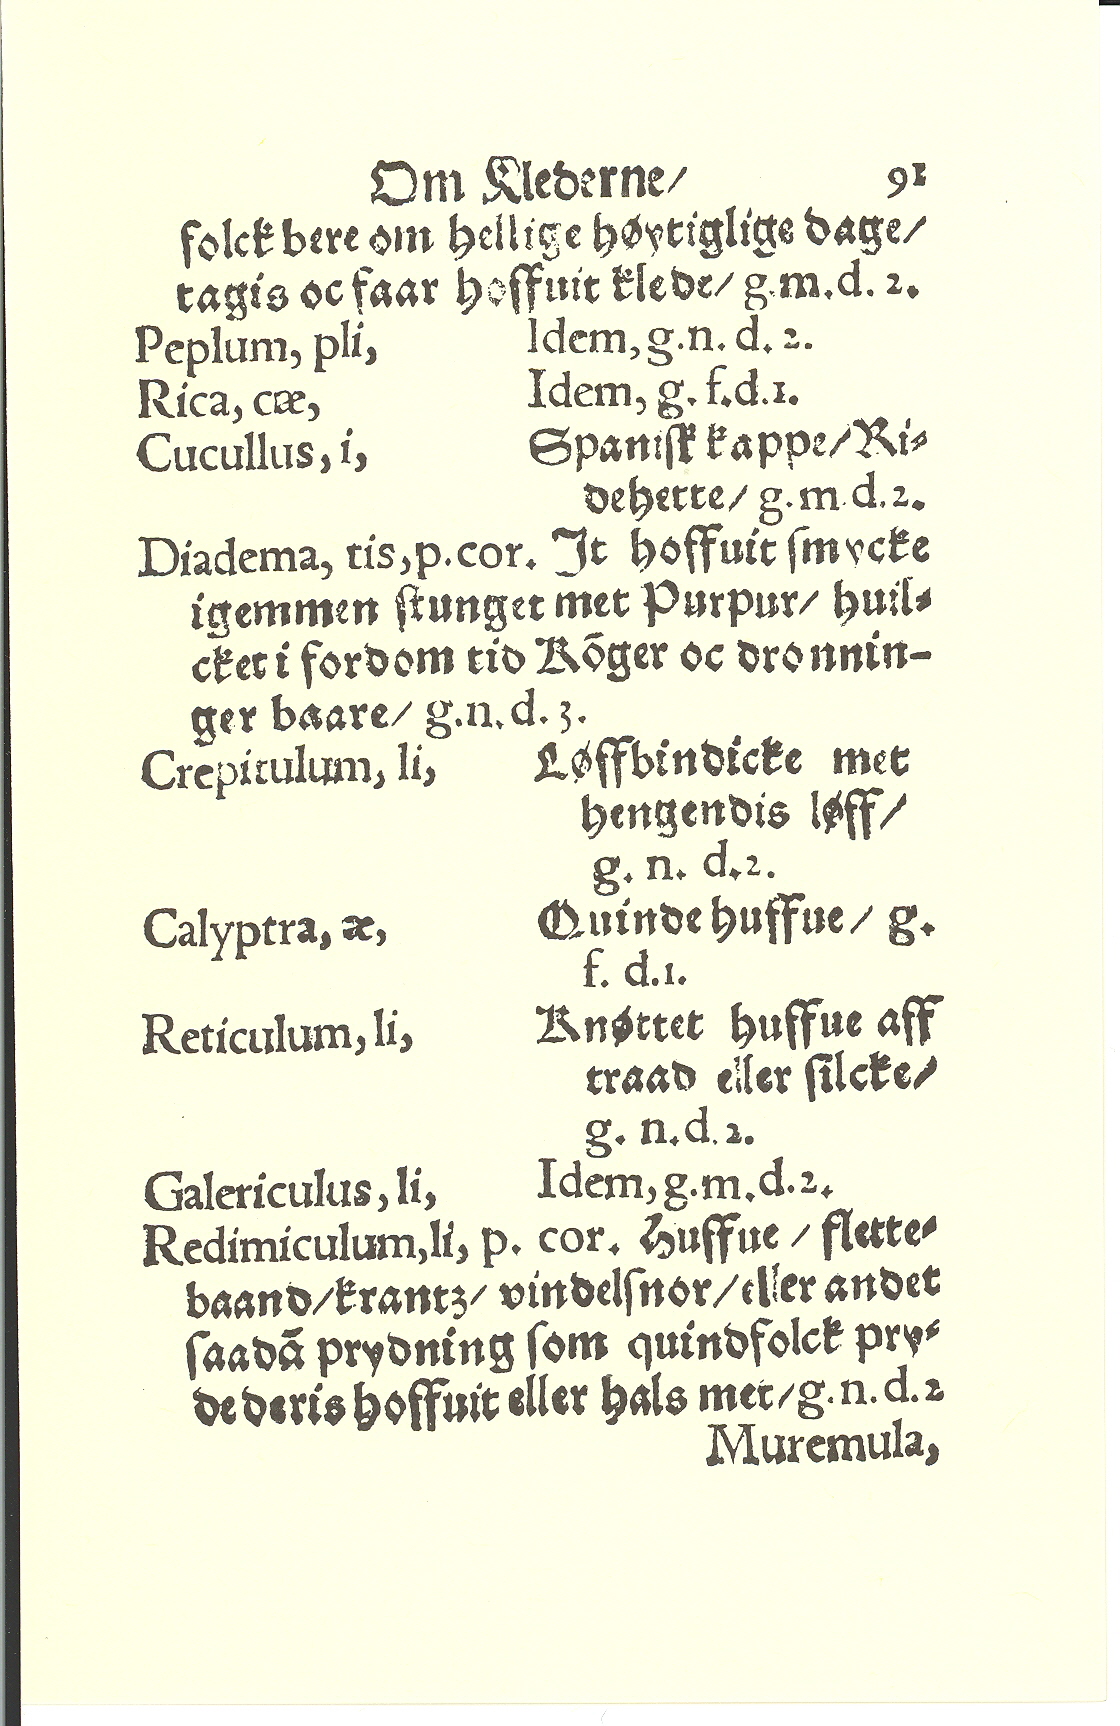 Om Klederne/ 91
folck bere om hellige høytiglige dage/
tagis oc faar hoffuit klede/ g.m.d. 2.
Peplum, pli, Idem, g.n. d. 2.
Rica, cæ, Idem, g. f.d.1.
Cucullus, i, Spanisk kappe/ Ri⸗
dehette/ g.m d.2.
Diadema, tis, p.cor. It hoffuit smycke
igemmen stunget met Purpur/ huil⸗
cket i fordom tid Kõger oc dronnin-
ger baare/ g.n. d. 3.
Crepitulum, li, Løffbindicke met
hengendis løff/
g. n. d.2.
Calyptra, æ, Quinde huffue/ g.
f. d.1.
Reticulum, li, Knøttet huffue aff
traad eller silcke/
g. n.d. 2.
Galericulus, li, Idem, g.m.d.2.
Redimiculum,li, p. cor. Huffue / flette⸗
baand/krantz/ vindelsnor/eller andet
saadã prydning som quindfolck pry⸗
de deris hoffuit eller hals met/g.n.d.2
Muremula,